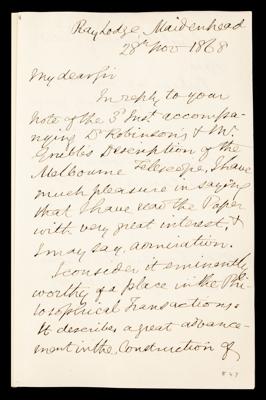 Ray Lodge, Maidenhead
28th Nov 1868
My dear Sir
In reply to your
note of the 3d Inst accompa-
nying Dr Robinson's & Mr
Grubbs Description of the
Melbourne Telescope, I have
much pleasure in saying
that I have read the Paper
with very great interest, &
I may say, admiration.
I consider it eminently
worthy of a place in the Phi-
losophical Transactions.
It describes a great advance-
ment in the Construction of